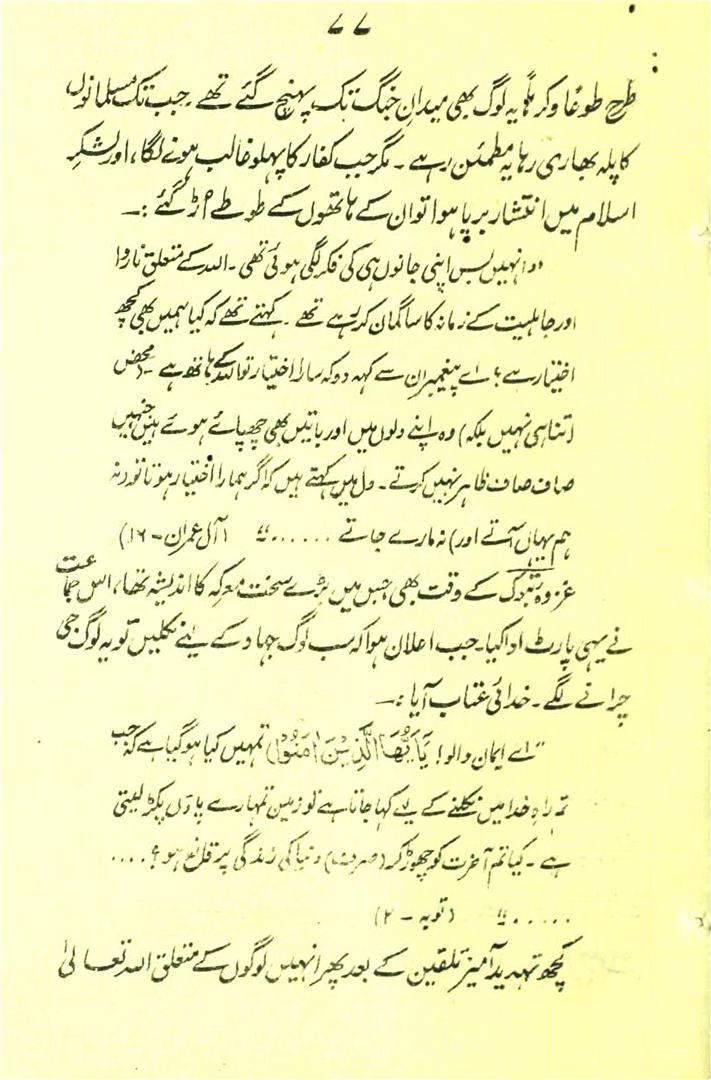 ۷۷
طرح طوعًا و کرہًا یہ لوگ بھی میدانِ جنگ تک پہنچ گئے تھے۔ جب تک مسلمانوں
کا پلہ بھاری رہا یہ مطمئن رہے۔ مگر جب کفار کا پہلو غالب ہونے لگا، اور لشکرِ
اسلام میں انتشار برپا ہوا تو ان کے ہاتھوں کے طوطے اڑ گئے :۔
"انہیں بس اپنی جانوں ہی کی فکر لگی ہوئی تھی۔ اللہ کے متعلق ناروا
اور جاہلیت کے زمانہ کا سا گمان کر رہے تھے۔ کہتے تھے کہ کیا ہمیں بھی کچھ
اختیار ہے؟ اے پیغمبر ان سے کہہ دو کہ سارا اختیار تو اللہ کے ہاتھ ہے۔ (محض
اتنا ہی نہیں بلکہ) وہ اپنے دلوں میں اور باتیں بھی چھپائے ہوئے ہیں جنہیں
صاف صاف ظاہر نہیں کرتے۔ دل میں کہتے ہیں کہ اگر ہمارا اختیار ہوتا تو (نہ
ہم یہاں آتے اور) نہ مارے جاتے ......." (آل عمران - ۱۶)
غزوہ تبوک کے وقت بھی جس میں بڑے سخت معرکہ کا اندیشہ تھا، اس جماعت
نے یہی پارٹ ادا کیا۔ جب اعلان ہوا کہ سب لوگ جہاد کے لئے نکلیں تو یہ لوگ جی
چرانے لگے۔ خدائی عتاب آیا :۔
"اے ایمان والو! (يٰاَيُّهَا الَّذِيْنَ اٰمَنُوْا) تمہیں کیا ہو گیا ہے کہ جب
تم راہِ خدا میں نکلنے کے لیے کہا جاتا ہے تو زمین تمہارے پاؤں پکڑ لیتی
ہے۔ کیا تم آخرت کو چھوڑ کر (صرف) دنیا کی زندگی پر قانع ہو؟....
....." (توبہ - ۲)
کچھ تہدید آمیز تلقین کے بعد پھر انہیں لوگوں کے متعلق اللہ تعالیٰ